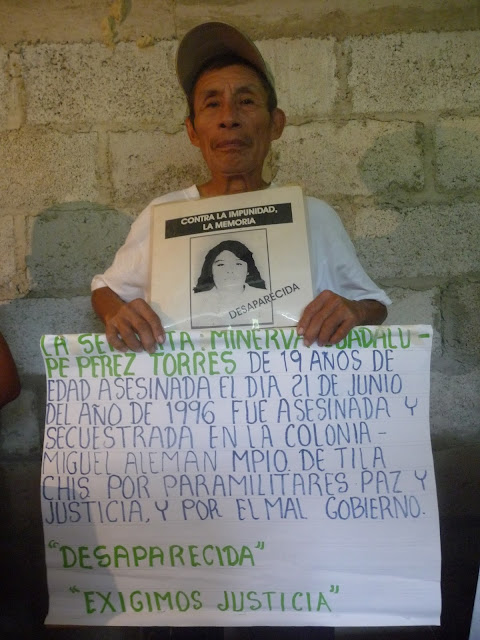 CONTRA LA IMPUNIDAD,
LA MEMORIA
DESAPARECIDA
LA SEÑORITA: MINERVA GUADALU-
PE PEREZ TORRES DE 19 AÑOS DE
EDAD ASESINADA EL DIA 21 DE JUNIO
DEL AÑO DE 1996 FUE ASESINADA Y
SECUESTRADA EN LA COLONIA-
MIGUEL ALEMAN MPIO. DE TILA
CHIS POR PARAMILITARES PAZ Y
JUSTICIA, Y POR EL MAL GOBIERNO.
"DESAPARECIDA"
"EXIGIMOS JUSTICIA"